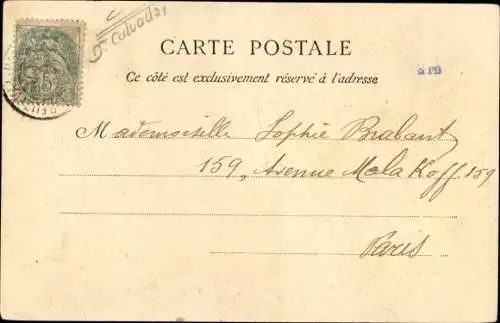 Dt Calvados
CARTE POSTALE
Ce côté est exclusivement réservé à l'adresse
5
Mademoiselle Sophie Brabant
159, Avenue Malakoff 159
Paris